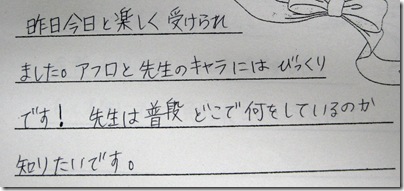 昨日今日と楽しく受けられ
ました。アフロと先生のキャラには びっくり
です! 先生は普段 どこで何をしているのか
知りたいです。